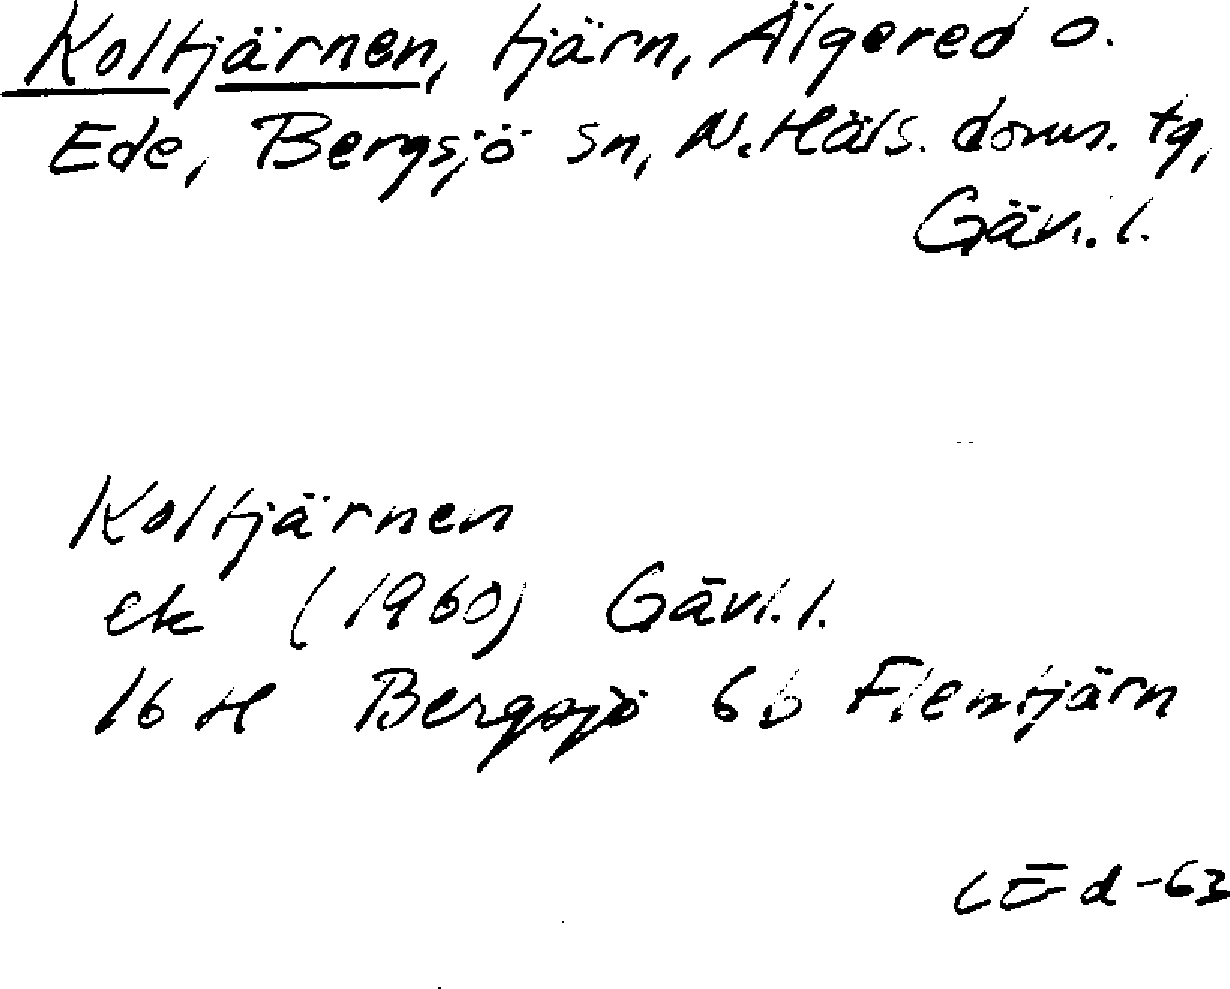 Koltjärnen, tjärn, Älgered o.
Ede, Bergsjö sn, N. Häls. doms. tg,
Gävl. l.
Koltjärnen
ek (1960) Gävl. l.
16 H Bergsjö 6b Flentjärn
LEd -63